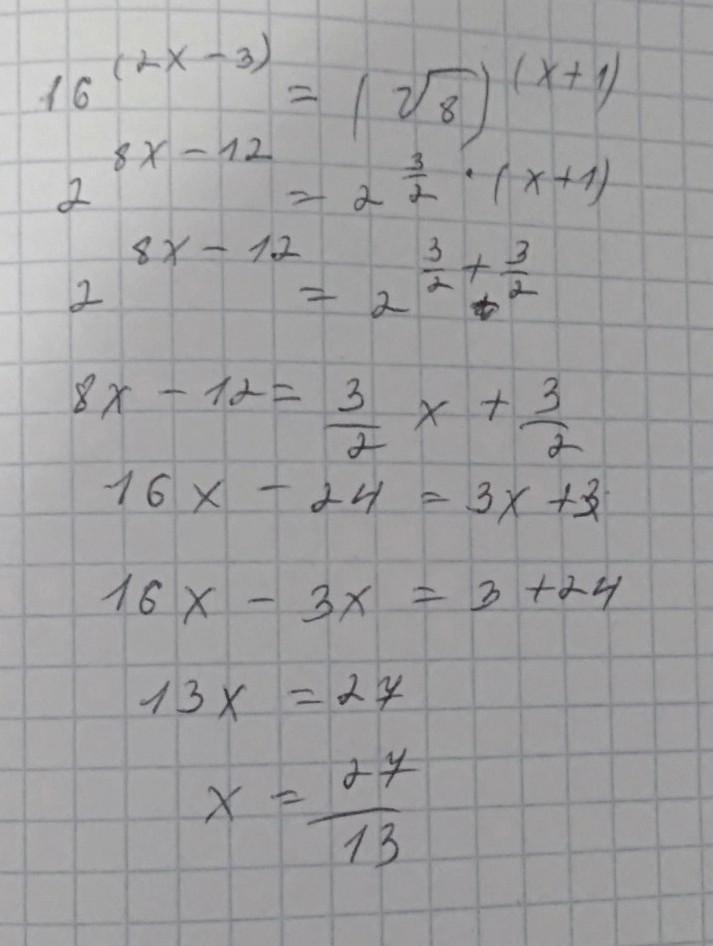 16^(2x-3) = (√8)^(x+1)
2^8x-12 = 2^3/2 · (x+1)
2^8x-12 = 2^3/2 + 3/2
8x - 12 = 3/2 x + 3/2
16x - 24 = 3x + 3
16x - 3x = 3 + 24
13x = 27
x = 27/13